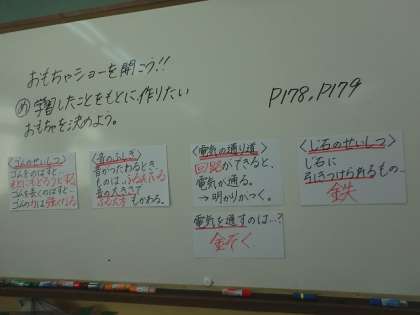 おもちゃショーを開こう!!
め 学習したことをもとに、作りたい
おもちゃを決めよう。
P178,P179
〈ゴムのせいしつ〉
ゴムをのばすと、
もとにもどろうとする
ゴムを長くのばすと…
ゴムの力は強くなる
〈音のふしぎ〉
音がつたわるとき、
ものは、ふるえている
音の大きさで
ふるえ方もかわる。
〈電気の通り道〉
回路ができると、
電気が通る。
→明かりがつく。
電気を通すのは…?
金ぞく
〈じ石のせいしつ〉
じ石に
引きつけられるもの…
鉄